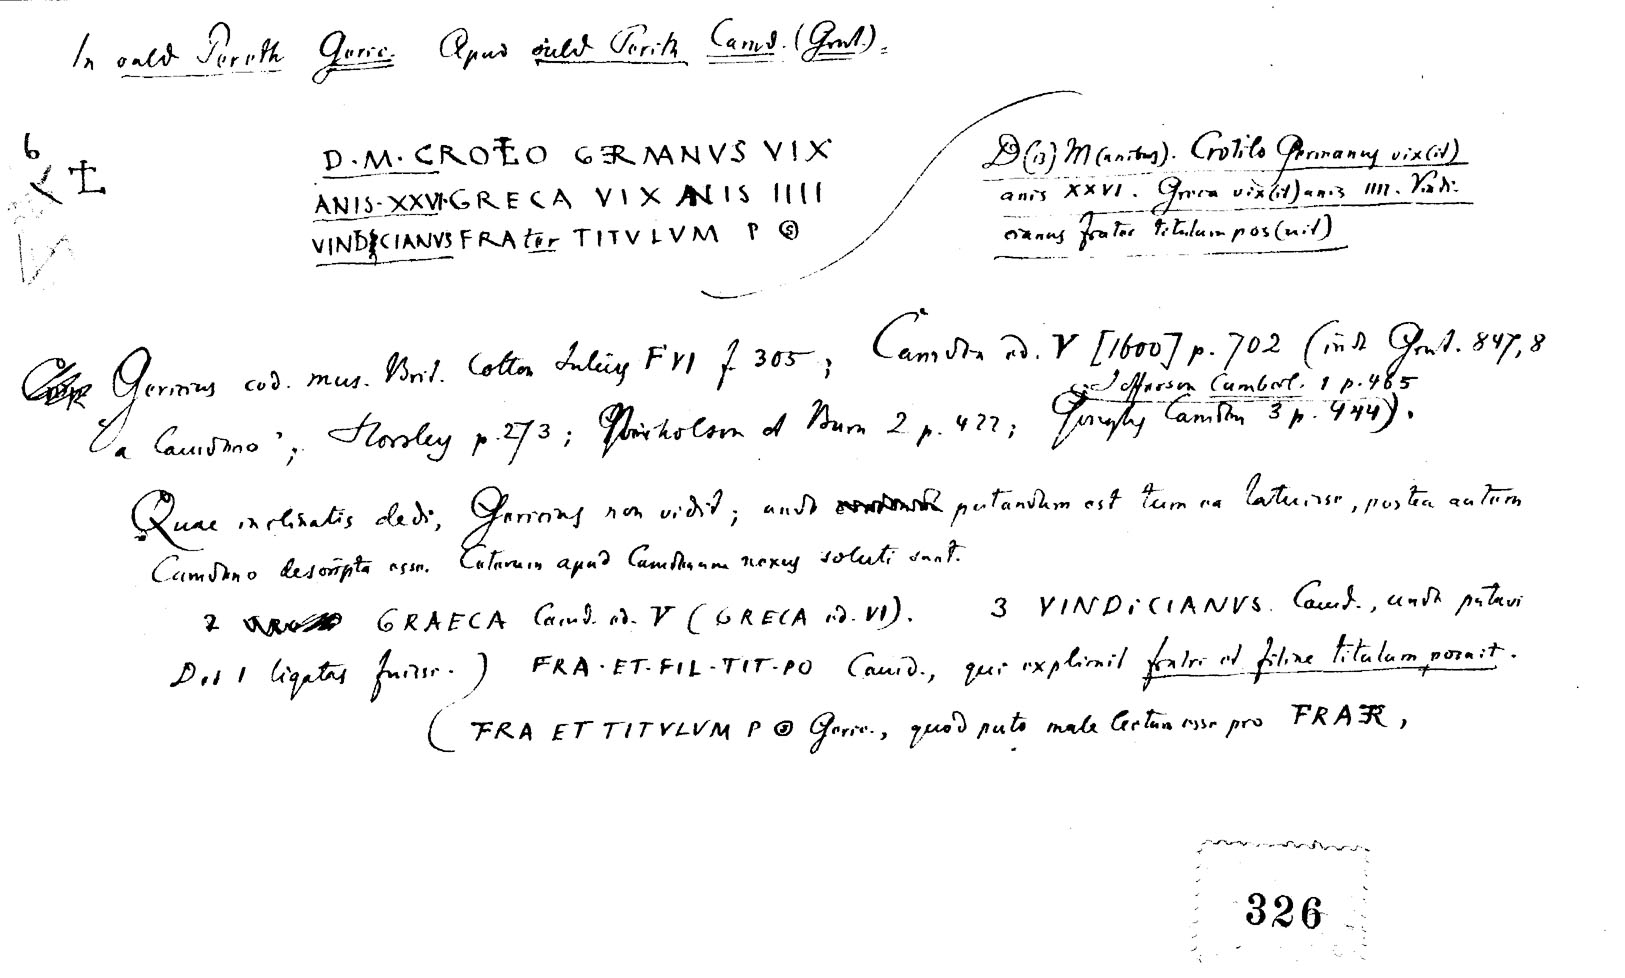 In ould Pereth Geric. Apud ould Perith Camd. (Grut.).
6
D. M. CROTILO GERMANVS VIX
ANIS. XXVI. GRECA VIX ANIS IIII
VINDICIANVS FRAter TITVLVM P OS
D(is) M(anibus). Crotilo Germanus vix(it)
anis XXVI. Greca vix(it) anis IIII. Vindi-
cianus frater titulum pos(uit)
Gericius cod. mus. Brit. Cotton Iulius F VI f. 305; Camden ed. V [1600] p. 702 (inde Grut. 847, 8
Jefferson Cumberl. 1 p. 465
'a Camdeno'; Horsley p. 273; Nicholson et Burn 2 p. 422; Gough's Camden 3 p. 444).
Quae inclinatis dedi, Gericius non vidit; unde putandum est tum ea latuisse, postea autem
Camdeno descripta esse. Ceterum apud Camdenum nexus soluti sunt.
2 GRAECA Camd. ed. V (GRECA ed. VI). 3 VINDiCIANVS. Camd., unde putavi
D et I ligatas fuisse. ) FRA. ET. FIL. TIT. PO Camd., qui explicuit fratri et filiae titulum posuit.
( FRA ET TITVLVM P OS Geric., quod puto male lectum esse pro FRAER,
326